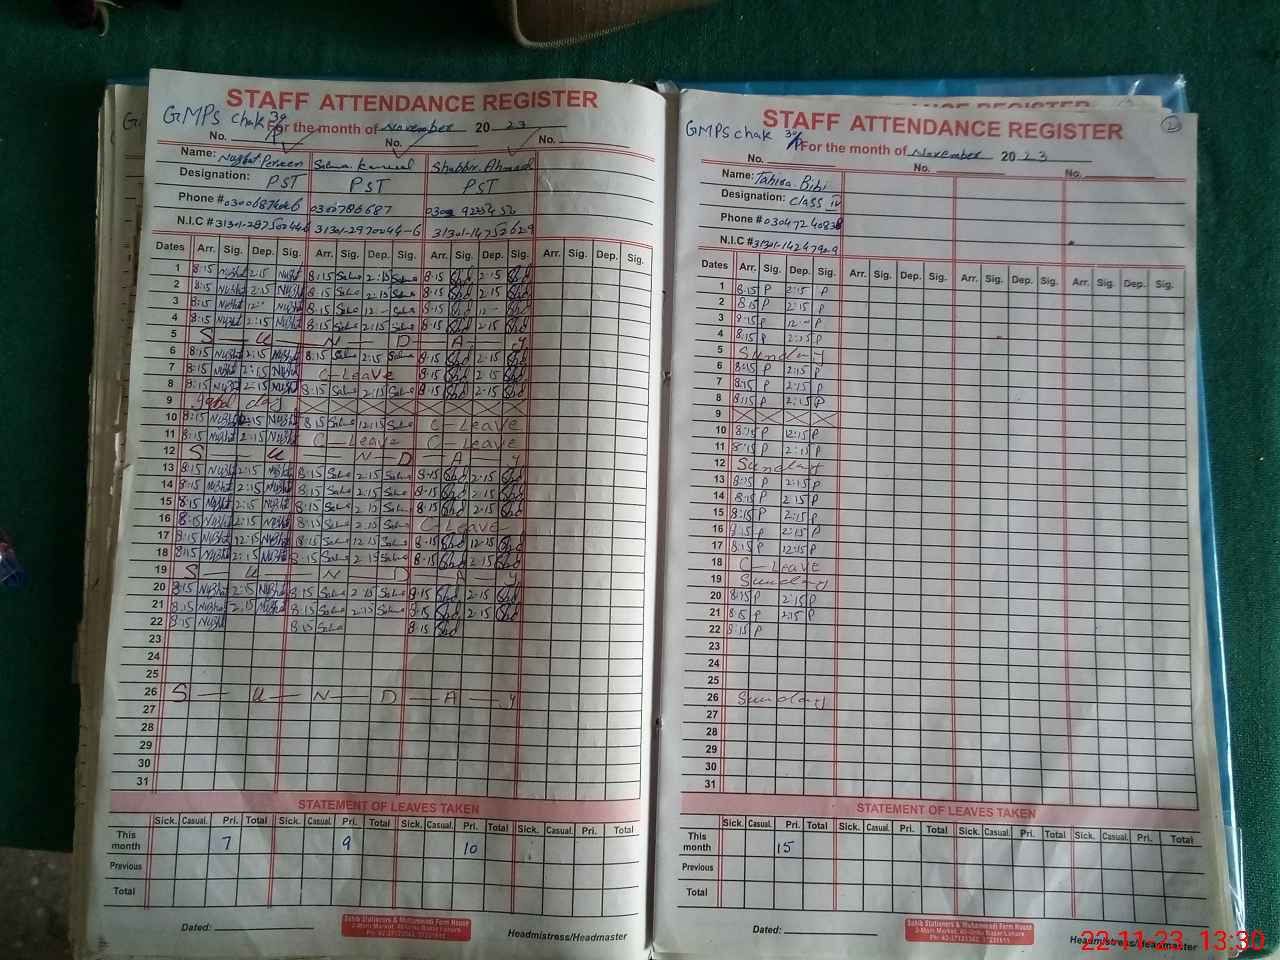 STAFF ATTENDANCE REGISTER
GMPS chak
For the month of November 2023
No. No. No.
Name: Nuzhat Perveen Salma Kanwal Shabbir Ahmad
Designation: PST PST PST
Phone #
N.I.C #
Dates Arr. Sig. Dep. Sig. Arr. Sig. Dep. Sig. Arr. Sig. Dep. Sig. Arr. Sig. Dep. Sig.
1 8:15 Nuzhat 2:15 Nuzhat 8:15 Salma 2:15 Salma 8:15 Shd 2:15 Shd
2 8:15 Nuzhat 2:15 Nuzhat 8:15 Salma 2:15 Salma 8:15 Shd 2:15 Shd
3 8:15 Nuzhat 12:- Nuzhat 8:15 Salma 12:- Salma 8:15 Shd 12:- Shd
4 8:15 Nuzhat 2:15 Nuzhat 8:15 Salma 2:15 Salma 8:15 Shd 2:15 Shd
5 S — U — N — D — A — y
6 8:15 Nuzhat 2:15 Nuzhat 8:15 Salma 2:15 Salma 8:15 Shd 2:15 Shd
7 8:15 Nuzhat 2:15 Nuzhat C-Leave 8:15 Shd 2:15 Shd
8 8:15 Nuzhat 2:15 Nuzhat 8:15 Salma 2:15 Salma 8:15 Shd 2:15 Shd
9 Iqbal day
10 8:15 Nuzhat 12:15 Nuzhat 8:15 Salma 12:15 Salma C-Leave
11 8:15 Nuzhat 2:15 Nuzhat C-Leave C-Leave
12 S — U — N — D — A — y
13 8:15 Nuzhat 2:15 Nuzhat 8:15 Salma 2:15 Salma 8:15 Shd 2:15 Shd
14 8:15 Nuzhat 2:15 Nuzhat 8:15 Salma 2:15 Salma 8:15 Shd 2:15 Shd
15 8:15 Nuzhat 2:15 Nuzhat 8:15 Salma 2:15 Salma 8:15 Shd 2:15 Shd
16 8:15 Nuzhat 2:15 Nuzhat 8:15 Salma 2:15 Salma C-Leave
17 8:15 Nuzhat 12:15 Nuzhat 8:15 Salma 12:15 Salma 8:15 Shd 12:15 Shd
18 8:15 Nuzhat 2:15 Nuzhat 8:15 Salma 2:15 Salma 8:15 Shd 2:15 Shd
19 S — U — N — D — A — y
20 8:15 Nuzhat 2:15 Nuzhat 8:15 Salma 2:15 Salma 8:15 Shd 2:15 Shd
21 8:15 Nuzhat 2:15 Nuzhat 8:15 Salma 2:15 Salma 8:15 Shd 2:15 Shd
22 8:15 Nuzhat 8:15 Salma 8:15 Shd
23
24
25
26 S — U — N — D — A — y
27
28
29
30
31
STATEMENT OF LEAVES TAKEN
Sick. Casual. Pri. Total Sick. Casual. Pri. Total Sick. Casual. Pri. Total Sick. Casual. Pri. Total
This month 7 9 10
Previous
Total
Dated:
Headmistress/Headmaster
STAFF ATTENDANCE REGISTER
GMPS chak
For the month of November 2023
No. No. No.
Name: Tahira Bibi
Designation: Class IV
Phone #
N.I.C #
Dates Arr. Sig. Dep. Sig. Arr. Sig. Dep. Sig. Arr. Sig. Dep. Sig. Arr. Sig. Dep. Sig.
1 8:15 P 2:15 P
2 8:15 P 2:15 P
3 8:15 P 12:- P
4 8:15 P 2:15 P
5 Sunday
6 8:15 P 2:15 P
7 8:15 P 2:15 P
8 8:15 P 2:15 P
9
10 8:15 P 12:15 P
11 8:15 P 2:15 P
12 Sunday
13 8:15 P 2:15 P
14 8:15 P 2:15 P
15 8:15 P 2:15 P
16 8:15 P 2:15 P
17 8:15 P 12:15 P
18 C-Leave
19 Sunday
20 8:15 P 2:15 P
21 8:15 P 2:15 P
22 8:15 P
23
24
25
26 Sunday
27
28
29
30
31
STATEMENT OF LEAVES TAKEN
Sick. Casual. Pri. Total Sick. Casual. Pri. Total Sick. Casual. Pri. Total Sick. Casual. Pri. Total
This month 15
Previous
Total
Dated:
Headmistress/Headmaster
22-11-23 13:30